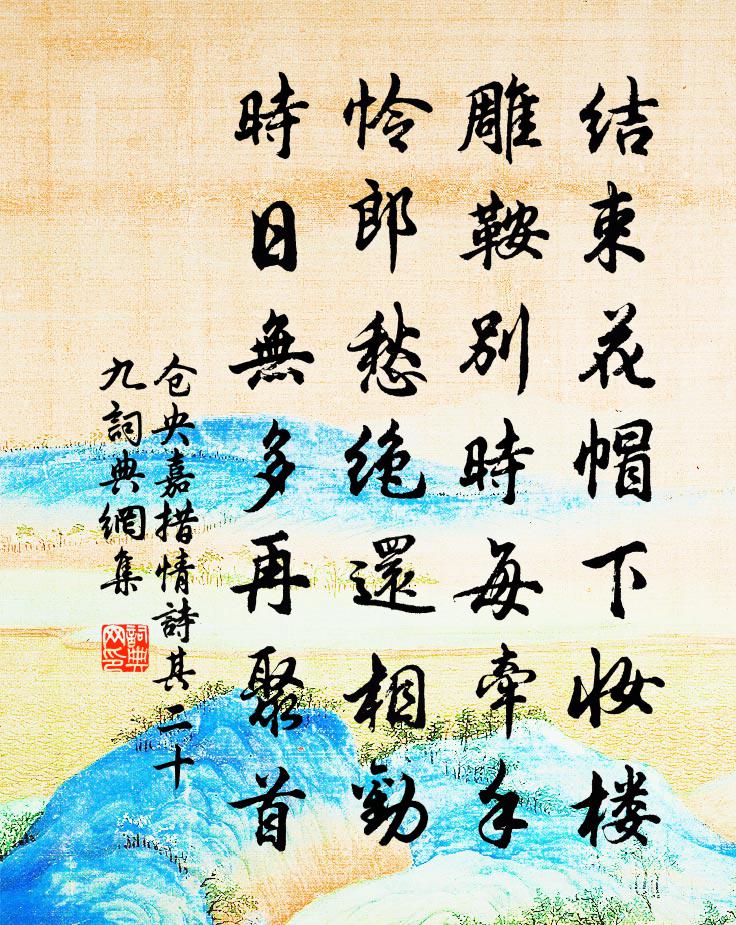 结束花帽下妆楼
雕鞍别時每牵手
怜郎愁绝還相勸
時日無多再聚首
仓央嘉措情詩其二十
九詞典網集
詞典
网印